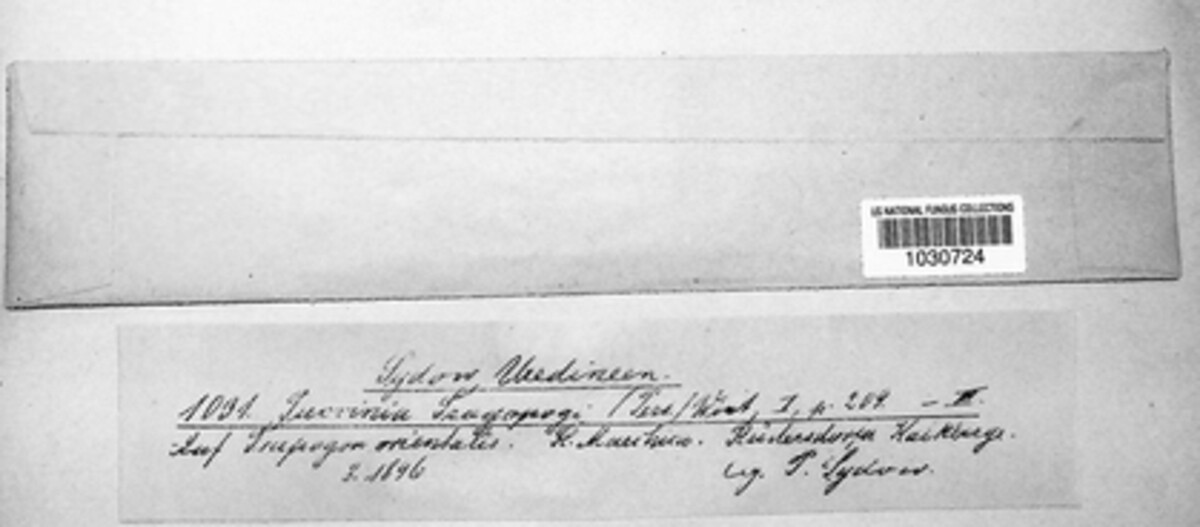 US NATIONAL FUNGUS COLLECTIONS
1030724
Sydow, Uredineen.
1091. Puccinia Tragopogi (Pers) Wint, I, p. 209. – III.
Auf Trapogon orientalis. Rüdersdorfer Kalkberge.
1896 leg. P. Sydow.